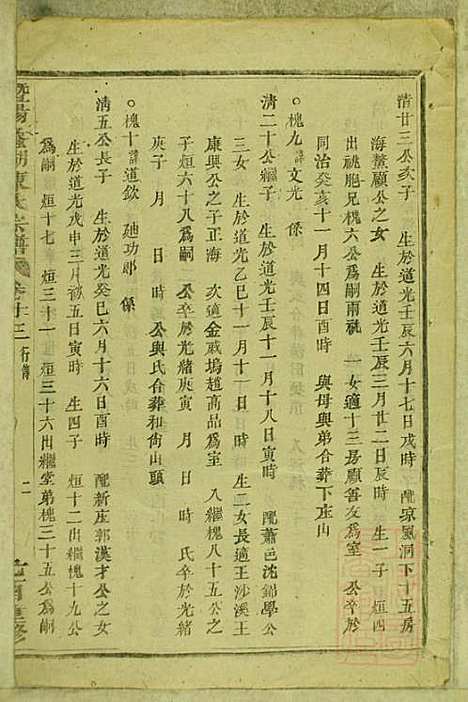 清廿三公次子　生於道光壬辰六月十七日戌時　配凉風洞下十五房
海鰲顧公之女　生於道光壬辰三月廿二日辰時　生一子　烜四
出祧胞兄槐六公爲嗣雨祧　一女適十三房顧善友爲室　公卒於
同治癸亥十一月十四日酉時　與母與弟合葬下庄山
槐九諱文光　係
清二十公繼子　生於道光壬辰十一月十八日寅時　配蕭邑沈錦學公
三女　生於道光乙巳十一月十一日　時　生二女長適王沙溪王
康興公之子正海　次適金戚塢趙高品爲室　入繼槐八十五公之
子烜六十八爲嗣　公卒於光緒庚寅　月　日　時　氏卒於光緒
庚子　月　日　時　公與氏合葬和尙山頭
槐十諱道欽　廸功郎　係
清五公長子　生於道光癸巳六月十六日酉時　配新庄郭漢才公之女
生於道光戊申三月初五日寅時　生四子　烜十二出繼槐十九公
爲嗣　烜十七　烜三十一　烜三十六出繼堂弟槐三十五公爲嗣
暨陽 湖東 氏宗譜 行傳
二
重修